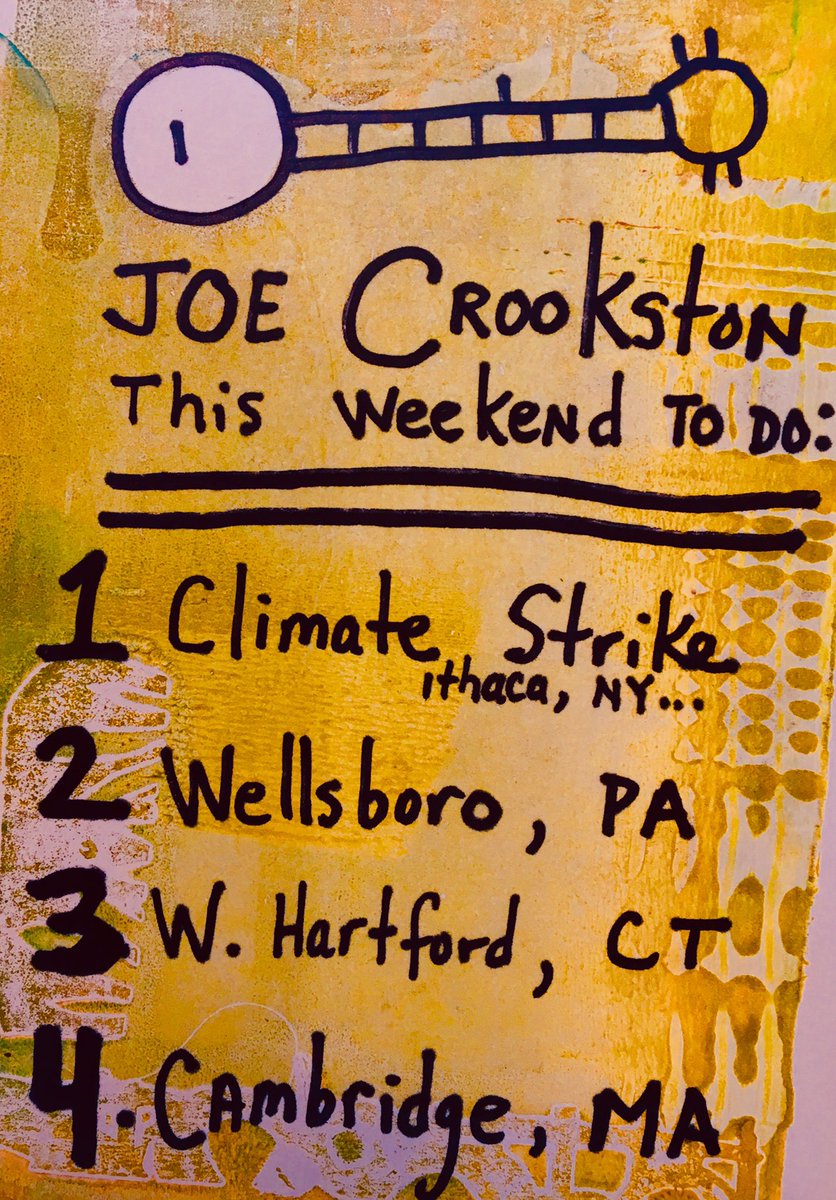 JOE CROOKSTON
This weekend TO DO:
1 Climate Strike
ithaca, NY...
2 Wellsboro, PA
3 W. Hartford, CT
4. Cambridge, MA